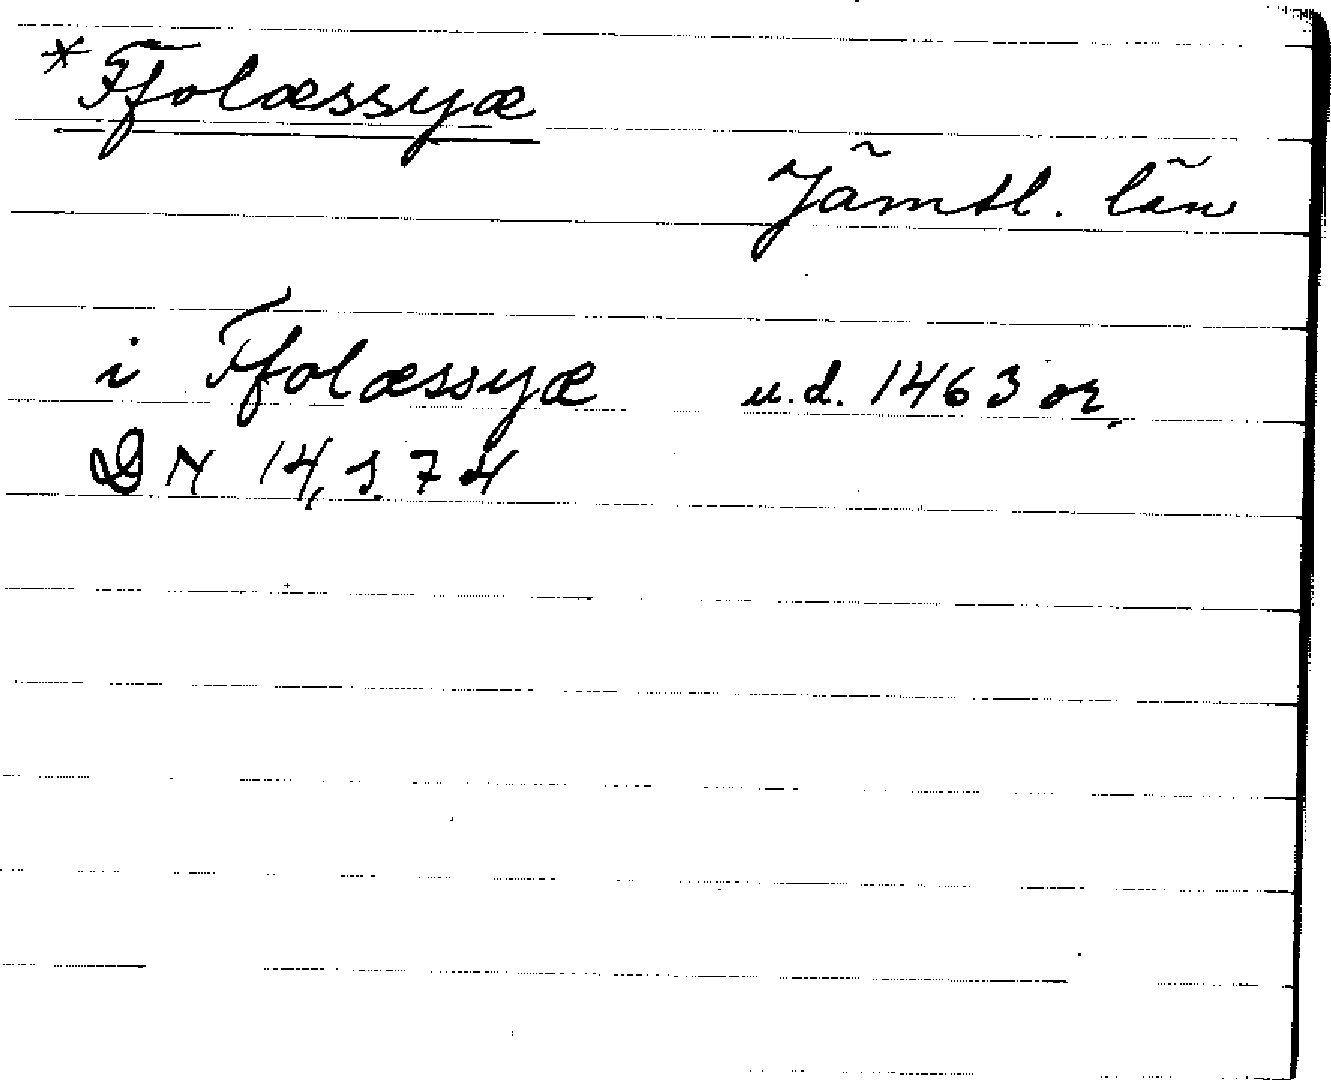 *Ffolæssyæ
Jämtl. län
i Ffolæssyæ u.d. 1463 or,
DN 14, s. 74